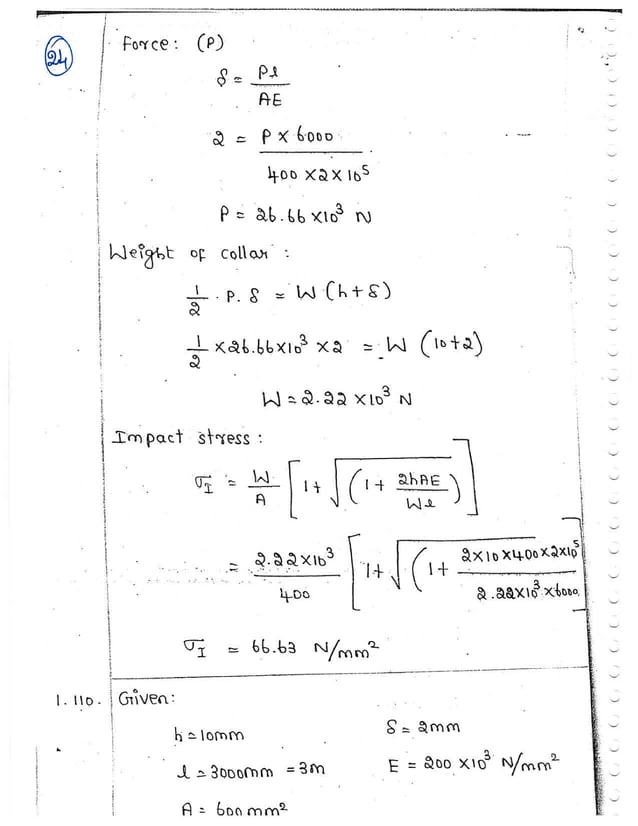 24
Force: (P)
δ = Pl / AE
2 = P × 6000 / 400 × 2 × 10⁵
P = 26.66 × 10³ N
Weight of collar :
1/2 . P. δ = W (h + δ)
1/2 × 26.66 × 10³ × 2 = W (10+2)
W = 2.22 × 10³ N
Impact stress :
σ_I = W/A [1 + √(1 + 2hAE / Wl)]
= 2.22 × 10³ / 400 [1 + √(1 + 2×10×400×2×10⁵ / 2.22×10³×6000)]
σ_I = 66.63 N/mm²
1.110. Given:
h = 10mm δ = 2mm
l = 3000mm = 3m E = 200 × 10³ N/mm²
A = 600 mm²